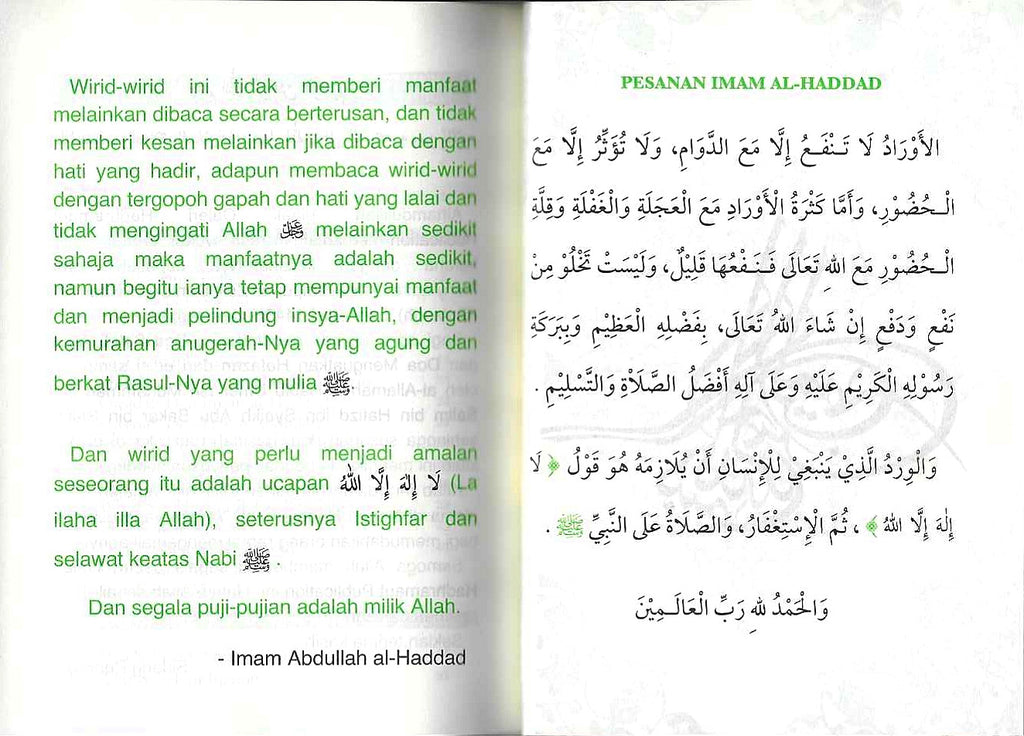 Wirid-wirid ini tidak memberi manfaat
melainkan dibaca secara berterusan, dan tidak
memberi kesan melainkan jika dibaca dengan
hati yang hadir, adapun membaca wirid-wirid
dengan tergopoh gapah dan hati yang lalai dan
tidak mengingati Allah ﷻ melainkan sedikit
sahaja maka manfaatnya adalah sedikit,
namun begitu ianya tetap mempunyai manfaat
dan menjadi pelindung insya-Allah, dengan
kemurahan anugerah-Nya yang agung dan
berkat Rasul-Nya yang mulia ﷺ.
Dan wirid yang perlu menjadi amalan
seseorang itu adalah ucapan لَا إِلٰهَ إِلَّا اللهُ (La
ilaha illa Allah), seterusnya Istighfar dan
selawat keatas Nabi ﷺ .
Dan segala puji-pujian adalah milik Allah.
- Imam Abdullah al-Haddad
PESANAN IMAM AL-HADDAD
الأَوْرَادُ لَا تَنْفَعُ إِلَّا مَعَ الدَّوَامِ، وَلَا تُؤَثِّرُ إِلَّا مَعَ
الْحُضُوْرِ، وَأَمَّا كَثْرَةُ الْأَوْرَادِ مَعَ الْعَجَلَةِ وَالْغَفْلَةِ وَقِلَّةِ
الْحُضُوْرِ مَعَ اللهِ تَعَالَى فَنَفْعُهَا قَلِيْلٌ، وَلَيْسَتْ تَخْلُوْ مِنْ
نَفْعٍ وَدَفْعٍ إِنْ شَاءَ اللهُ تَعَالَى، بِفَضْلِهِ الْعَظِيْمِ وَبِبَرَكَةِ
رَسُوْلِهِ الْكَرِيْمِ عَلَيْهِ وَعَلَى آلِهِ أَفْضَلُ الصَّلَاةِ وَالتَّسْلِيْمِ .
وَالْوِرْدُ الَّذِيْ يَنْبَغِيْ لِلْإِنْسَانِ أَنْ يُلَازِمَهُ هُوَ قَوْلُ ﴿ لَا
إِلٰهَ إِلَّا اللهُ ﴾ ، ثُمَّ الْإِسْتِغْفَارُ، وَالصَّلَاةُ عَلَى النَّبِيِّ ﷺ .
وَالْحَمْدُ لِلهِ رَبِّ الْعَالَمِيْنَ